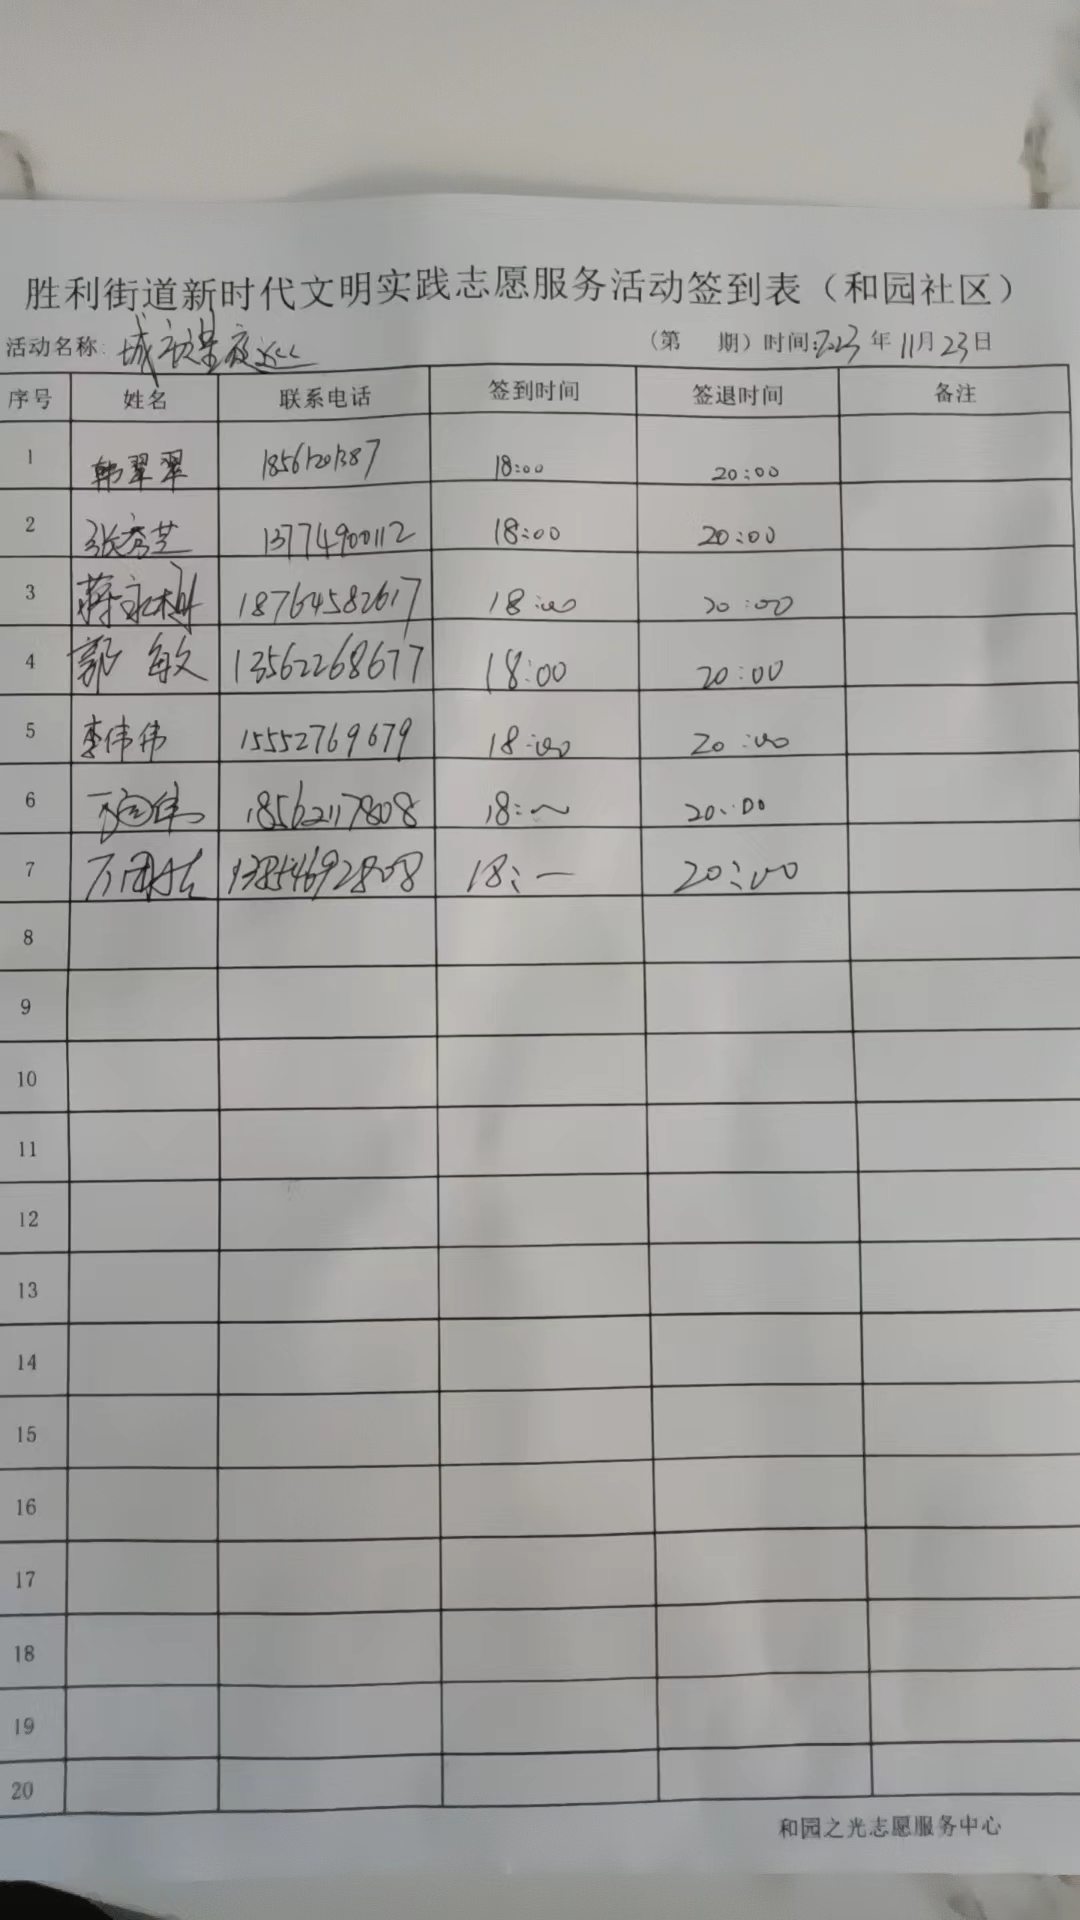 胜利街道新时代文明实践志愿服务活动签到表（和园社区）
活动名称: 城 夜巡 （第 期）时间:2023年11月23日
序号 姓名 联系电话 签到时间 签退时间 备注
1 韩翠翠 18:00 20:00
2 张秀芝 13774900112 18:00 20:00
3 蒋永 18764582617 18:00 20:00
4 郭敏 13562268677 18:00 20:00
5 李伟伟 15552769679 18:00 20:00
6 18562117808 18: 20:00
7 13854692808 18: 20:00
8
9
10
11
12
13
14
15
16
17
18
19
20
和园之光志愿服务中心